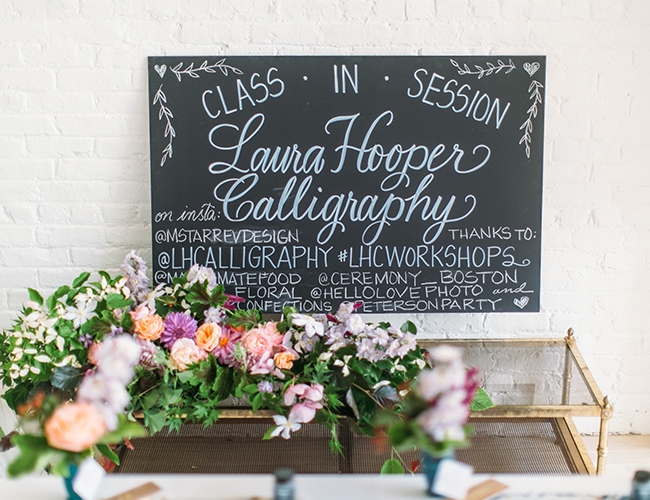 CLASS · IN · SESSION
Laura Hooper
Calligraphy
on insta:
THANKS TO:
@MSTARREVDESIGN
@LHCALLIGRAPHY #LHCWORKSHOPS
MATEFOOD @CEREMONY_BOSTON
FLORAL @HELLOLOVEPHOTO and
CONFECTIONS PETERSONPARTY